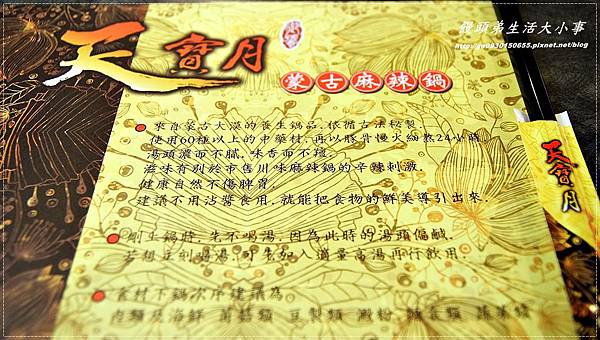 饅頭弟生活大小事
http://ga0930150655.pixnet.net/blog
天寶月
蒙古麻辣鍋
來自蒙古大漠的養生鍋品.依循古法秘製
使用60種以上的中藥材.再以豚骨慢火細熬24小時.
湯頭濃而不膩.味香而不
滋味有別於市售川味麻辣鍋的辛辣刺激.
健康自然不傷脾胃.
建議不用沾醬食用.就能把食物的鮮美導引出來.
剛上鍋時.先不喝湯.因為此時的湯頭偏鹹.
若想立刻喝湯.可先加入適量高湯再行飲用.
食材下鍋次序建議為
肉類及海鮮 菇類 豆製類 澱粉 蔬菜類
天寶月